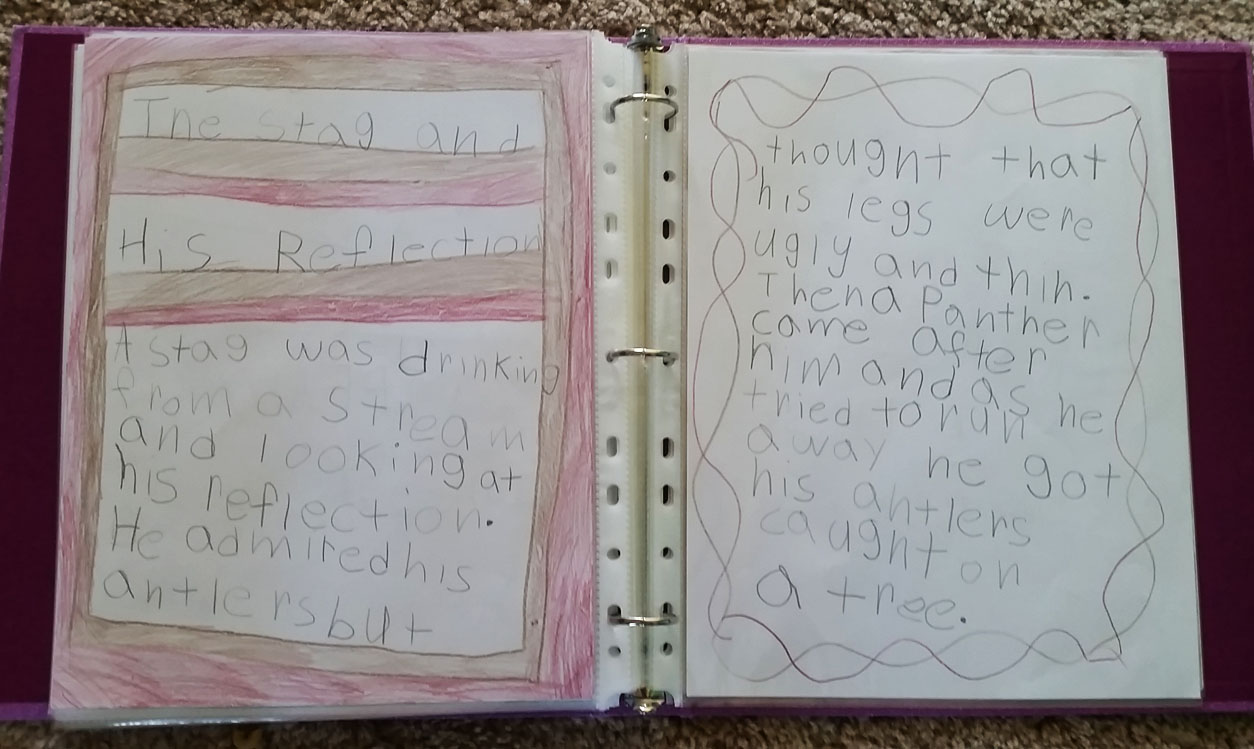 The stag and
His Reflection
A stag was drinking
from a stream
and looking at
his reflection.
He admired his
antlers but
thought that
his legs were
ugly and thin.
Then a Panther
came after
him and as
tried to run he
away he got
his antlers
caught on
a tree.